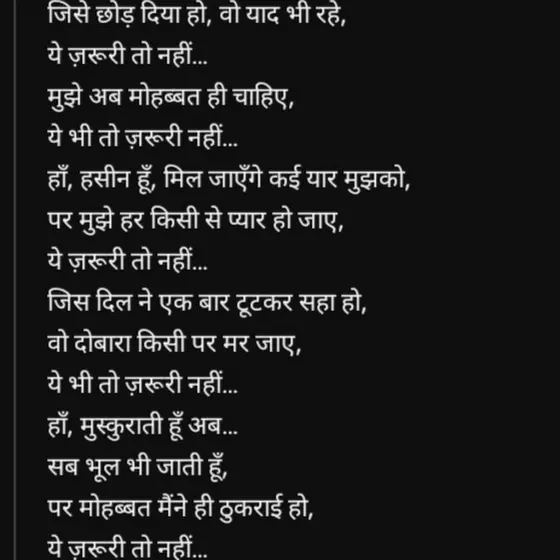 जिसे छोड़ दिया हो, वो याद भी रहे,
ये ज़रूरी तो नहीं...
मुझे अब मोहब्बत ही चाहिए,
ये भी तो ज़रूरी नहीं...
हाँ, हसीन हूँ, मिल जाएँगे कई यार मुझको,
पर मुझे हर किसी से प्यार हो जाए,
ये ज़रूरी तो नहीं...
जिस दिल ने एक बार टूटकर सहा हो,
वो दोबारा किसी पर मर जाए,
ये भी तो ज़रूरी नहीं...
हाँ, मुस्कुराती हूँ अब...
सब भूल भी जाती हूँ,
पर मोहब्बत मैंने ही ठुकराई हो,
ये ज़रूरी तो नहीं...